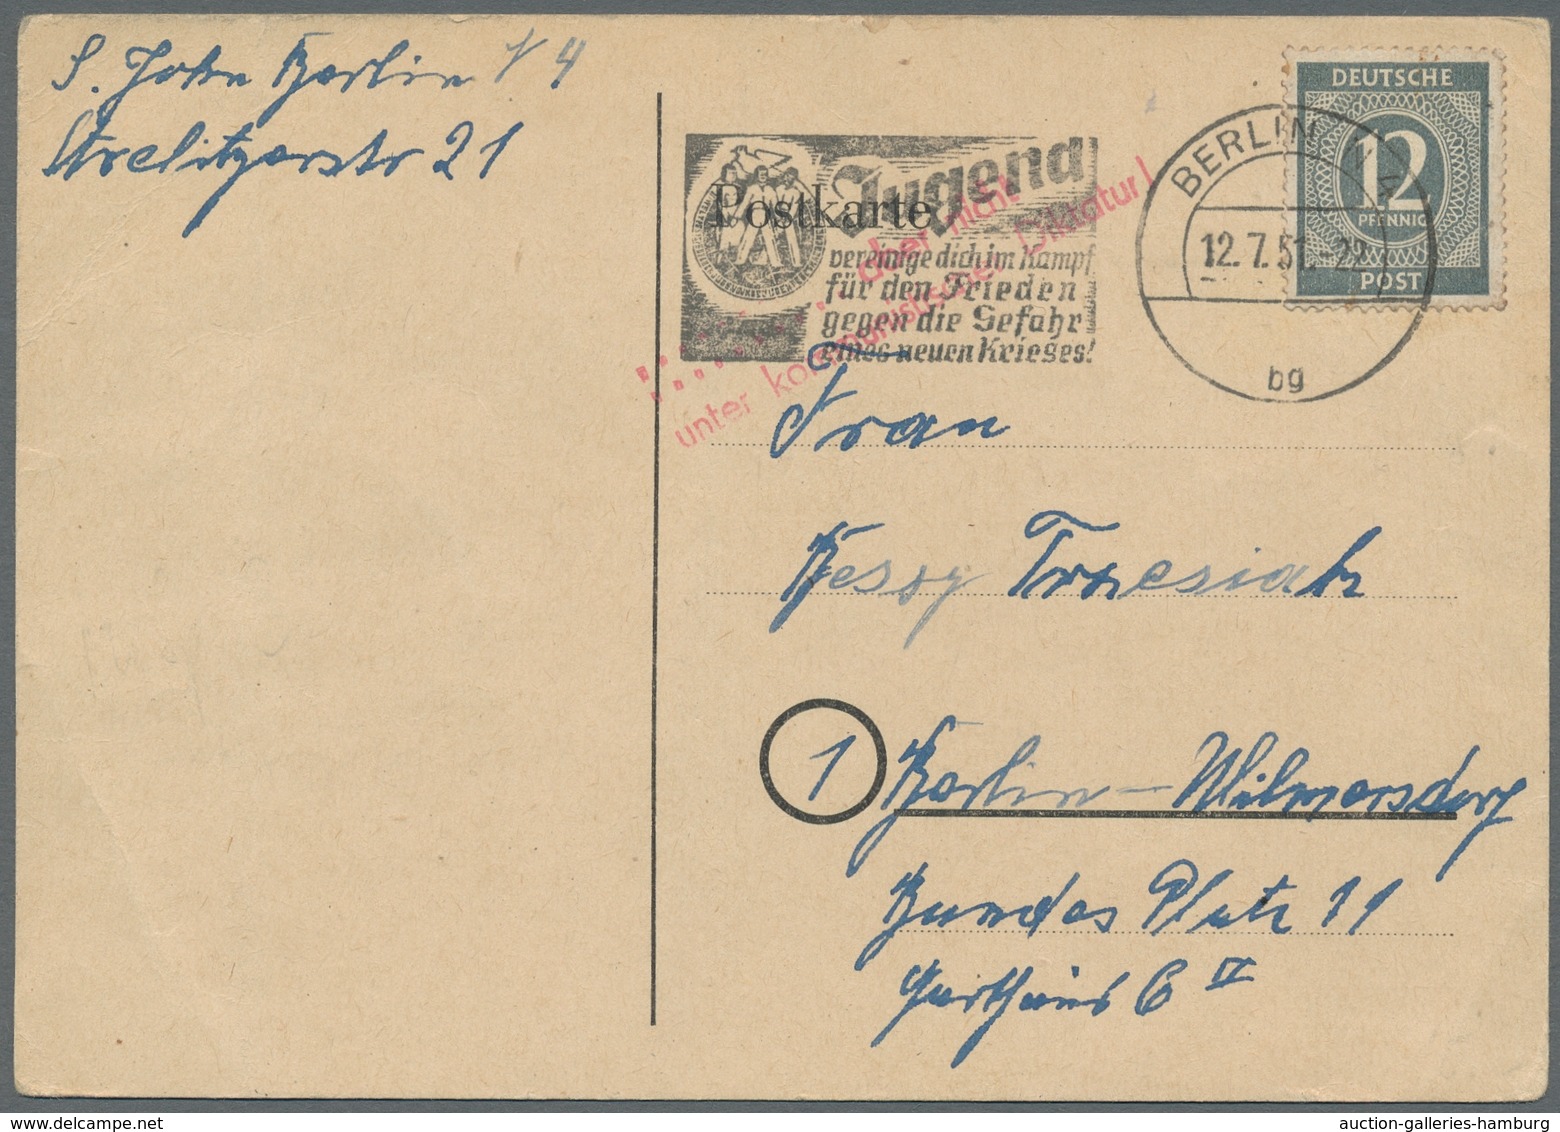 S. John Berlin N 4
Strelitzerstr 21
Postkarte
Jugend
vereinige dich im Kampf
für den Frieden
gegen die Gefahr
eines neuen Krieges!
........ aber nicht
unter kommunistischer Diktatur!
BERLIN N 4
12.7.51.-22
bg
DEUTSCHE
12
PFENNIG
POST
Frau
1 Berlin-Wilmersdorf
Bundes Platz 11
Garthaus C IV
auction-galleries-hamburg